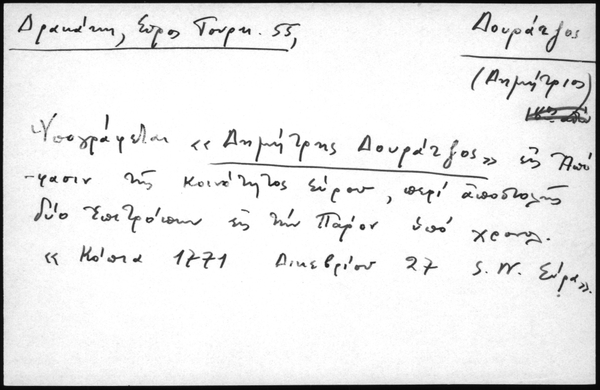 Δρακάκη, Σύρος Τουρκ. 55,
Δουράτζος
(Δημήτριος)
Ὑπογράφεται «Δημήτρης Δουράτζος» εἰς Ἀπό
-φασιν τῆς κοινότητος Σύρου, περί ἀποστολῆς
δύο ἐπιτρόπων εἰς τήν Πάρον ὑπό χρονολ.
« Κόπια 1771 Δικεβρίου 27 S. N. Σύρα».